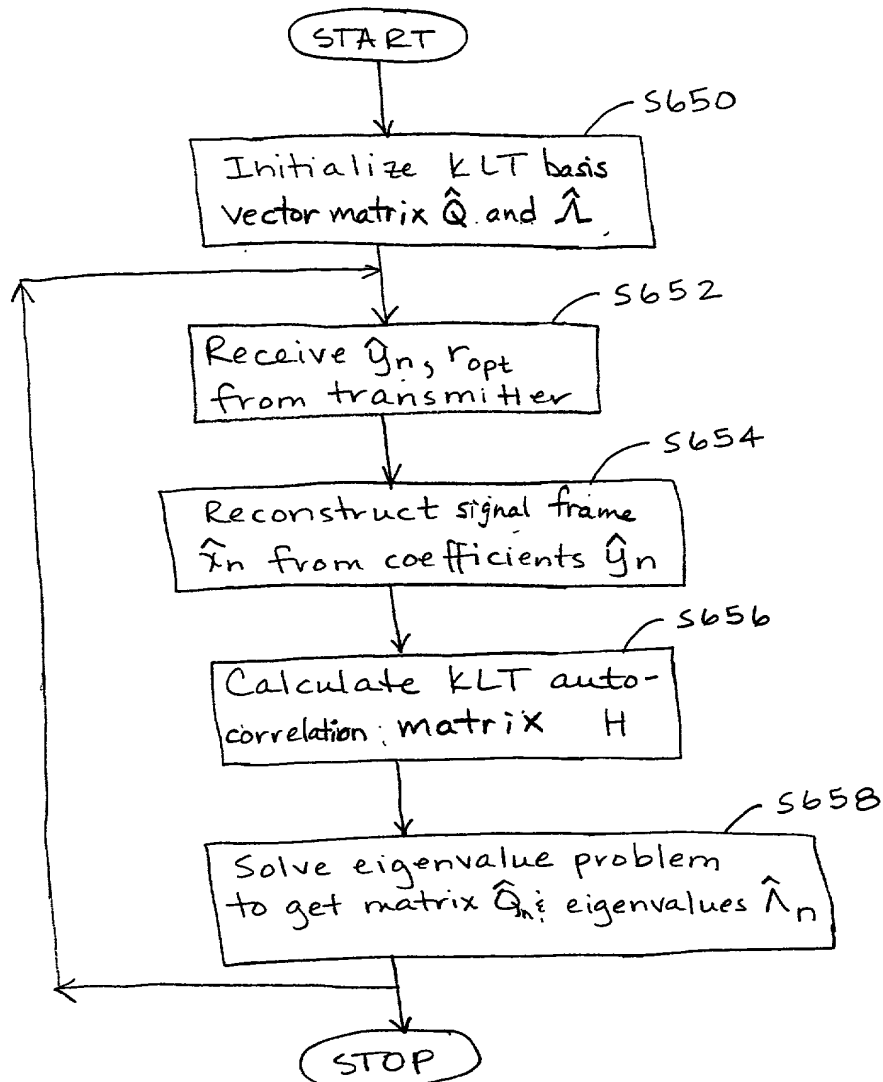 START
S650
Initialize KLT basis
vector matrix Q̂ and Λ̂
S652
Receive ŷn, ropt
from transmitter
S654
Reconstruct signal frame
x̂n from coefficients ŷn
S656
Calculate KLT auto-
correlation matrix H
S658
Solve eigenvalue problem
to get matrix Q̂n & eigenvalues Λ̂n
STOP